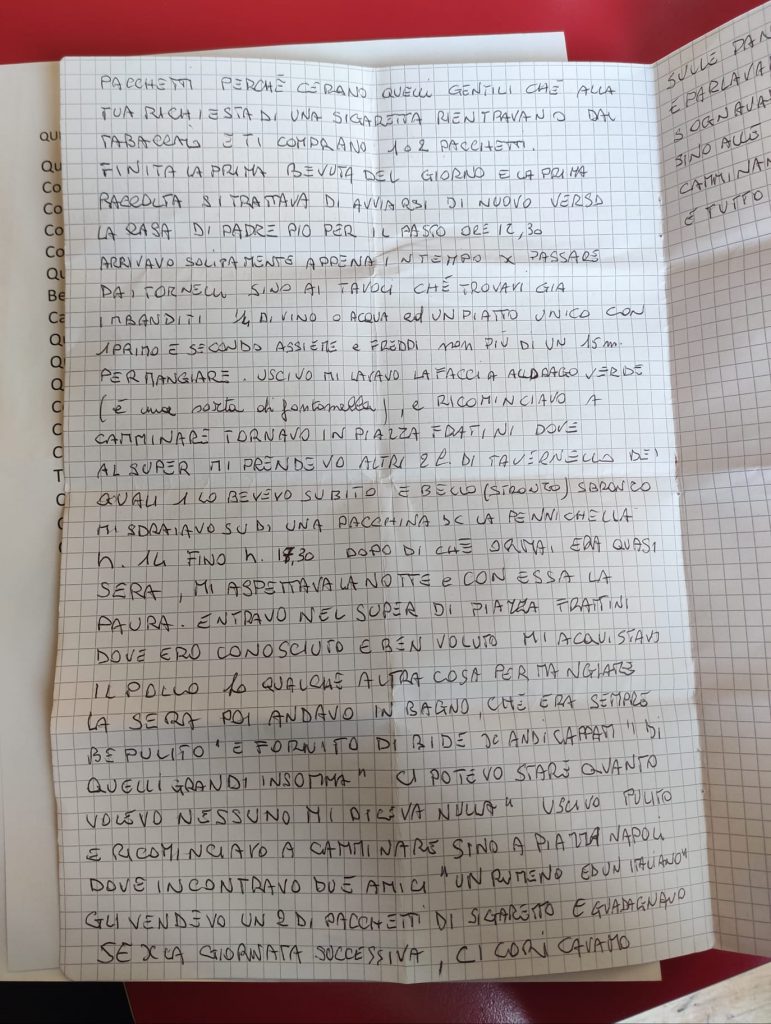 PACCHETTI PERCHÈ CERANO QUELLI GENTILI CHÈ ALLA
TUA RICHIESTA DI UNA SIGARETTA RIENTRAVANO DAL
TABACCAIO E TI COMPRANO 1 o 2 PACCHETTI.
FINITA LA PRIMA BEVUTA DEL GIORNO E LA PRIMA
RACCOLTA SI TRATTAVA DI AVVIARSI DI NUOVO VERSO
LA CASA DI PADRE PIO PER IL PASTO ORE 12,30
ARRIVAVO SOLITAMENTE APPENA IN TEMPO X PASSARE
DAI TORNELLI SINO AI TAVOLI CHÈ TROVAVI GIA
IMBANDITI 1/4 DI VINO O ACQUA ed UN PIATTO UNICO CON
1 PRIMO E SECONDO ASSIEME e FREDDI non PIÙ DI UN 15 m.
PER MANGIARE. USCIVO MI LAVAVO LA FACCIA AL DRAGO VERDE
(è una sorta di fontanella), e RICOMINCIAVO A
CAMMINARE TORNAVO IN PIAZZA FRATTINI DOVE
AL SUPER MI PRENDEVO ALTRI 2 L. DI TAVERNELLO DEI
QUALI 1 LO BEVEVO SUBITO E BELLO (STRONZO) SBRONZO
MI SDRAIAVO SU DI UNA PACCHINA X LA PENNICHELLA
h. 14 FINO h. 17,30 DOPO DI CHÈ ORMAI ERA QUASI
SERA, MI ASPETTAVA LA NOTTE e CON ESSA LA
PAURA. ENTRAVO NEL SUPER DI PIAZZA FRATTINI
DOVE ERO CONOSCIUTO E BEN VOLUTO MI ACQUISTAVO
IL POLLO o QUALCHE ALTRA COSA PER MANGIARE
LA SERA POI ANDAVO IN BAGNO, CHÈ ERA SEMPRE
BE PULITO E FORNITO DI BIDE X ANDICAPPATI "DI
QUELLI GRANDI INSOMMA" CI POTEVO STARE QUANTO
VOLEVO NESSUNO MI DICEVA NULLA" USCIVO PULITO
E RICOMINCIAVO A CAMMINARE SINO A PIAZZA NAPOLI
DOVE INCONTRAVO DUE AMICI "UN RUMENO ED UN ITALIANO"
GLI VENDEVO UN 2 DI PACCHETTI DI SIGARETTO E GUADAGNAVO
SE X LA GIORNATA SUCCESSIVA, CI CORICAVAMO
SULLE PAN
E PARLAVA
SOGNAVA
SINO ALLE
CAMMINA
E TUTTO
QU
Qu
Co
Co
Co
Co
Qu
Be
Ca